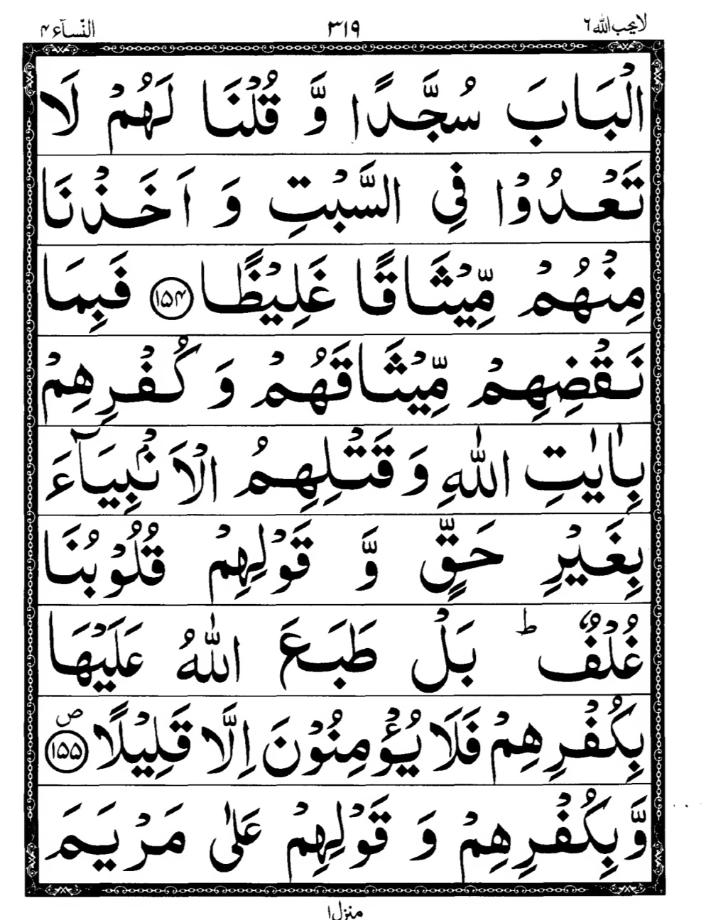 لا یحب الله ٦ ٣١٩ النسآء ٤
الْبَابَ سُجَّدًا وَّ قُلْنَا لَهُمْ لَا
تَعْدُوْا فِی السَّبْتِ وَ اَخَذْنَا
مِنْهُمْ مِّيْثَاقًا غَلِيْظًا ۝۱۵۴ فَبِمَا
نَقْضِهِمْ مِّيْثَاقَهُمْ وَ كُفْرِهِمْ
بِاٰيٰتِ اللّٰهِ وَ قَتْلِهِمُ الْاَنْۢبِيَآءَ
بِغَيْرِ حَقٍّ وَّ قَوْلِهِمْ قُلُوْبُنَا
غُلْفٌ ؕ بَلْ طَبَعَ اللّٰهُ عَلَيْهَا
بِكُفْرِهِمْ فَلَا يُؤْمِنُوْنَ اِلَّا قَلِيْلًا ۝۱۵۵ ص
وَّ بِكُفْرِهِمْ وَ قَوْلِهِمْ عَلٰی مَرْيَمَ
منزل ۱